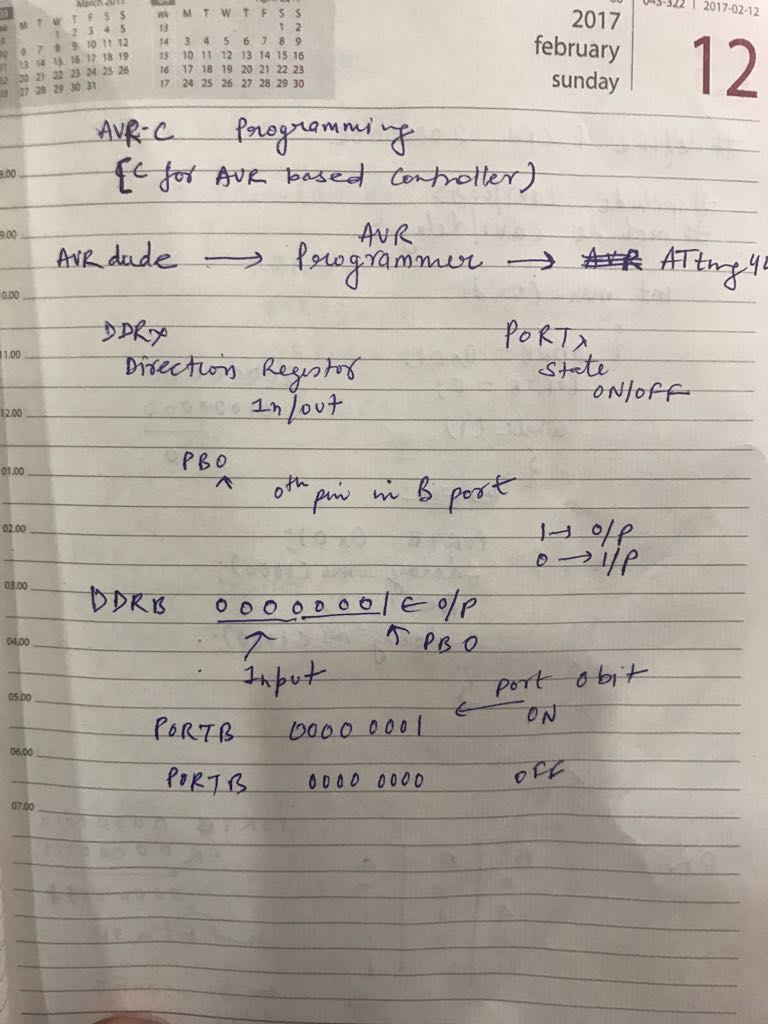 March 2017
M T W T F S S
1 2 3 4 5
6 7 8 9 10 11 12
13 14 15 16 17 18 19
20 21 22 23 24 25 26
27 28 29 30 31
Wk M T W T F S S
13 1 2
14 3 4 5 6 7 8 9
15 10 11 12 13 14 15 16
16 17 18 19 20 21 22 23
17 24 25 26 27 28 29 30
043-322 2017-02-12
2017
february
sunday
12
AVR-C Programming
[C for AVR based Controller)
8.00
9.00
AVR
AVR dude → Programmer →
DDRx PORTx
11.00
Direction Registor State
In/out ON/OFF
12.00
PB0
01.00
^ 0th pin in B port
02.00
1 → O/P
0 → I/P
03.00
DDRB 0 0 0 0 0 0 0 1 ← O/P
04.00
↗ ↖ PB0
Input
port 0 bit
05.00
← ON
PORTB 0000 0001
06.00
PORTB 0000 0000 OFF
07.00